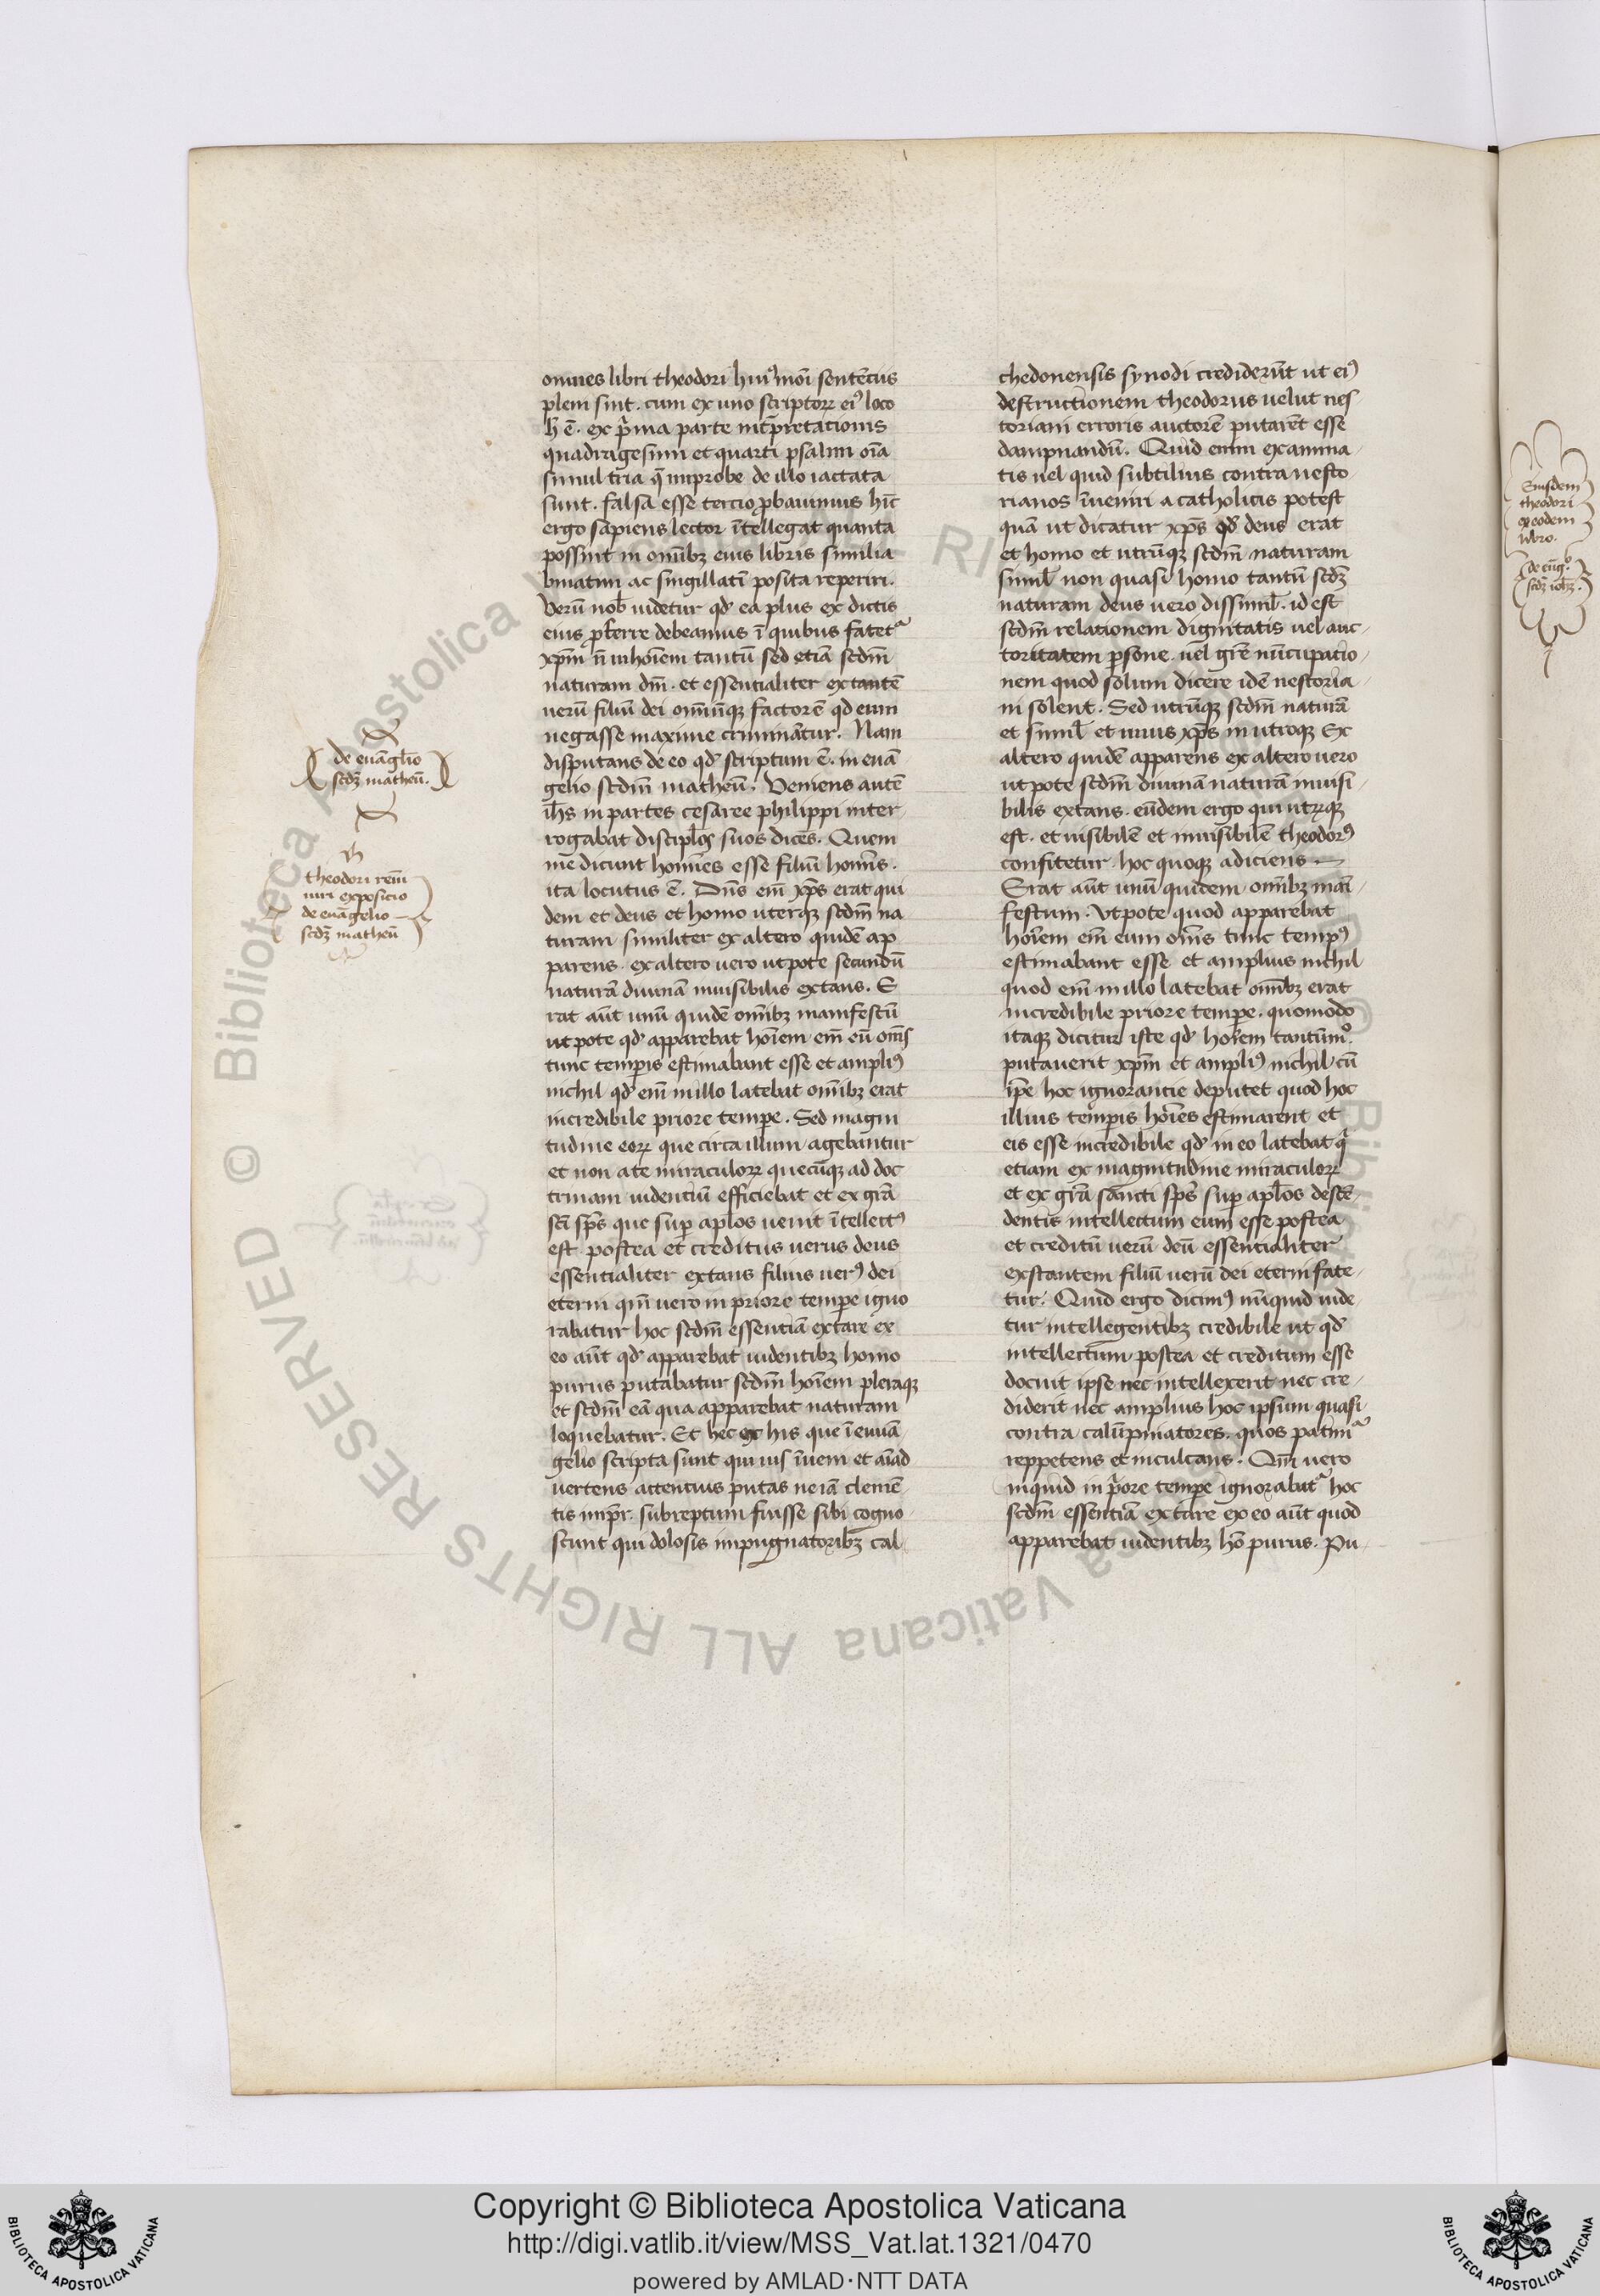 omnes libri theodori hui9modi sentēciis
pleni sint. cum ex uno scriptorꝝ ei9 loco
h̄ ē. ex p̄ma parte int̄pretationis
quadragesimi et quarti psalmi oīa
simul tria q̄ improbe de illo iactata
sunt. falsa esse tercio ꝓbauimus hīc
ergo sapiens lector ītellegat quanta
possint in omībꝫ eius libris similia
binatim ac singillatī posita reperiri.
Verū nob̄ uidetur qd̄ ea plus ex dictis
eius ꝓferre debeamus ī quibus fatet᷑
xp̄m n̄ in hoīem tantū sed etiā scdm̄
naturam dm̄. et essentialiter extantē
uerū filiū dei omniūqꝫ factorē qd eum
negasse maxime criminātur. Nam
disputans de eo qd̄ scriptum ē. in euā
gelio scdm̄ matheū. Veniens autē
ih̄s in partes cesaree philippi inter-
rogabat discipl̄os suos dicēs. Quem
me dicunt homīes esse filiū homīs.
ita locutus ē. Dn̄s em̄ xp̄s erat qui
dem et deus et homo uterqꝫ scdm̄ na
turam similiter ex altero quidē ap
parens. ex altero uero utpote secundū
naturā diuinā inuisibilis extans. E
rat aūt unū quidē omībꝫ manifestū
utpote qd̄ apparebat hoīem em̄ eū om̄s
tunc temꝑis estimabant esse et ampli9
nichil qd̄ em̄ in illo latebat omībꝫ erat
incredibile priore temꝑe. Sed magni
tudine eorꝝ que circa illum agebantur
et non ate miraculorꝝ quecūqꝫ ad doc
trinam uidentiū efficiebat et ex gr̄a
sc̄i sp̄s que suꝑ apl̄os uenit ītellect9
est postea et creditus uerus deus
essentialiter extans filius uer9 dei
eterni qm̄ uero in priore temꝑe igno
rabatur hoc scdm̄ essentiā extare ex
eo aūt qd̄ apparebat uidentibꝫ homo
purus putabatur scdm̄ hoīem pleraqꝫ
et scdm̄ eā qua apparebat naturam
loquebatur. Et hec ex his que ī euuā
gelio scripta sunt qui uis īuem et aīad
uertens attentius putas ne iā clemē
tis imp̄r. subreptum fuisse sibi cogno
scunt qui dolosis impugnatoribꝫ cal-
chedonensis synodi crediderūt ut ei9
destructionem theodorus uelut nes
toriani erroris auctorē putarēt esse
dampnandū. Quid enim examina-
tis uel quid subtilius contra nesto-
rianos īueniri a catholicis potest
quā ut dicatur xp̄s qd̄ deus erat
et homo et utrūqꝫ scdm̄ naturam
simil̄ non quasi homo tantū scdꝫ
naturam deus uero dissimil̄. id est
scdm̄ relationem dignitatis uel auc-
toritatem ꝑsone. uel gr̄e nūcupatio-
nem quod solum dicere idē nestoria-
ni solent. Sed utrūqꝫ scdm̄ naturā
et simil̄ et unus xp̄s in utroqꝫ Ex
altero quidē apparens ex altero uero
utpote scdm̄ diuinā naturā inuisi-
bilis extans. eūdem ergo qui utrꝝqꝫ
est. et uisibilē et inuisibilē theodor9
confitetur. hoc quoqꝫ adiciens
Erat aūt unū quidem omībꝫ mani
festum. Vtpote quod apparebat
hoīem em̄ eum om̄s tunc temp9
estimabant esse et amplius nichil
quod em̄ in illo latebat omībꝫ erat
incredibile priore temꝑe. quomodo
itaqꝫ dicitur iste qd̄ hoīem tantūmo
putauerit xp̄m et ampli9 nichil cū
ip̄e hoc ignorantie deputet quod hoc
illius temꝑis hoīes estimarent et
eis esse incredibile qd̄ in eo latebat q̄
etiam ex magnitudine miraculorꝝ
et ex gr̄a sancti sp̄s suꝑ apl̄os descē-
dentis intellectum eum esse postea
et creditū uerū deū essentialiter
exstantem filiū uerū dei eterni fate-
tur. Quid ergo dicim9 nūquid uide-
tur intellegentibꝫ credibile ut qd̄
intellectum postea et creditum esse
docuit ipse nec intellexerit nec cre-
diderit nec amplius hoc ipsum quasi
contra calūpniatores. quos patim᷑
reppetens et inculcans. Qm̄ uero
inquid in p̄ore temꝑe ignorabat᷑ hoc
scdm̄ essentiā extare ex eo aūt quod
apparebat uidentibꝫ hō purus. Pu-
de euāgl̄io
scdꝫ matheū.
theodori rem̄
iuri exposicio
de euāgelio
scdꝫ matheū
Eiusdem
theodori
ex eodem
libro.
de eūg̊.
scdꝫ ioh̄.
© Biblioteca Apostolica Vaticana ALL RIGHTS RESERVED
Copyright © Biblioteca Apostolica Vaticana
http://digi.vatlib.it/view/MSS_Vat.lat.1321/0470
powered by AMLAD·NTT DATA
BIBLIOTECA APOSTOLICA VATICANA
BIBLIOTECA APOSTOLICA VATICANA